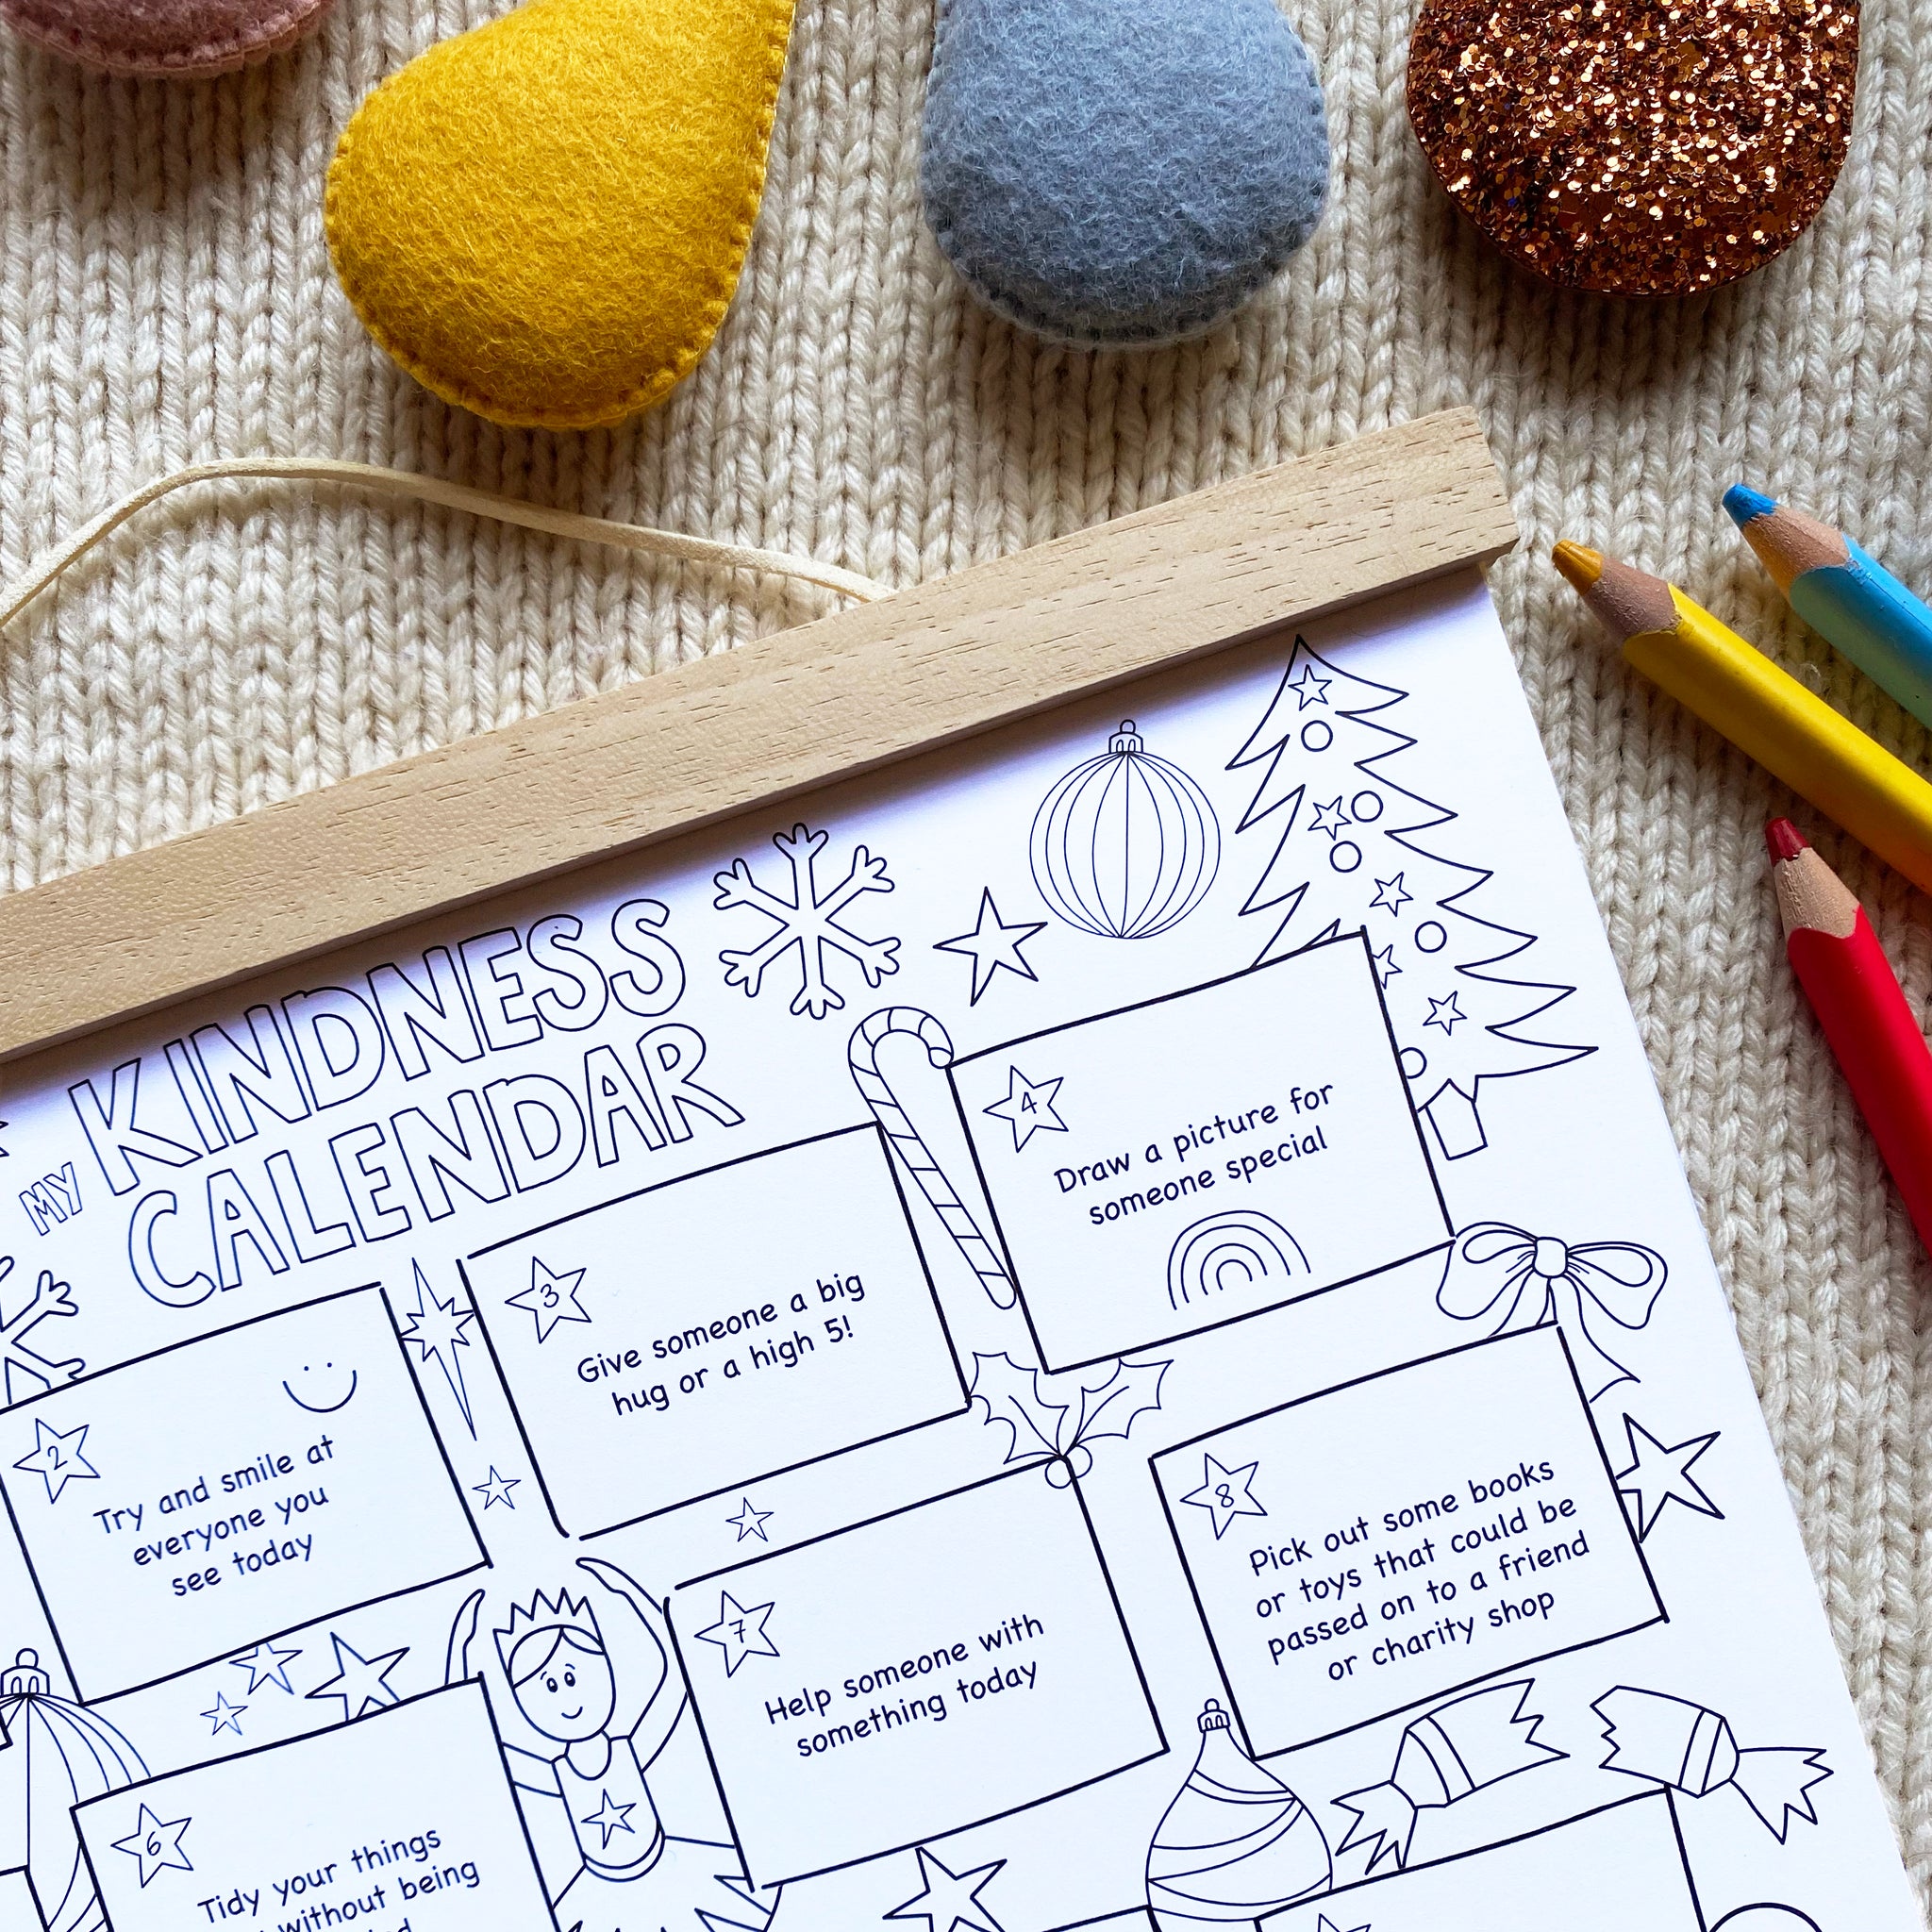 MY KINDNESS
CALENDAR
2
Try and smile at
everyone you
see today
3
Give someone a big
hug or a high 5!
4
Draw a picture for
someone special
6
Tidy your things
without being
7
Help someone with
something today
8
Pick out some books
or toys that could be
passed on to a friend
or charity shop